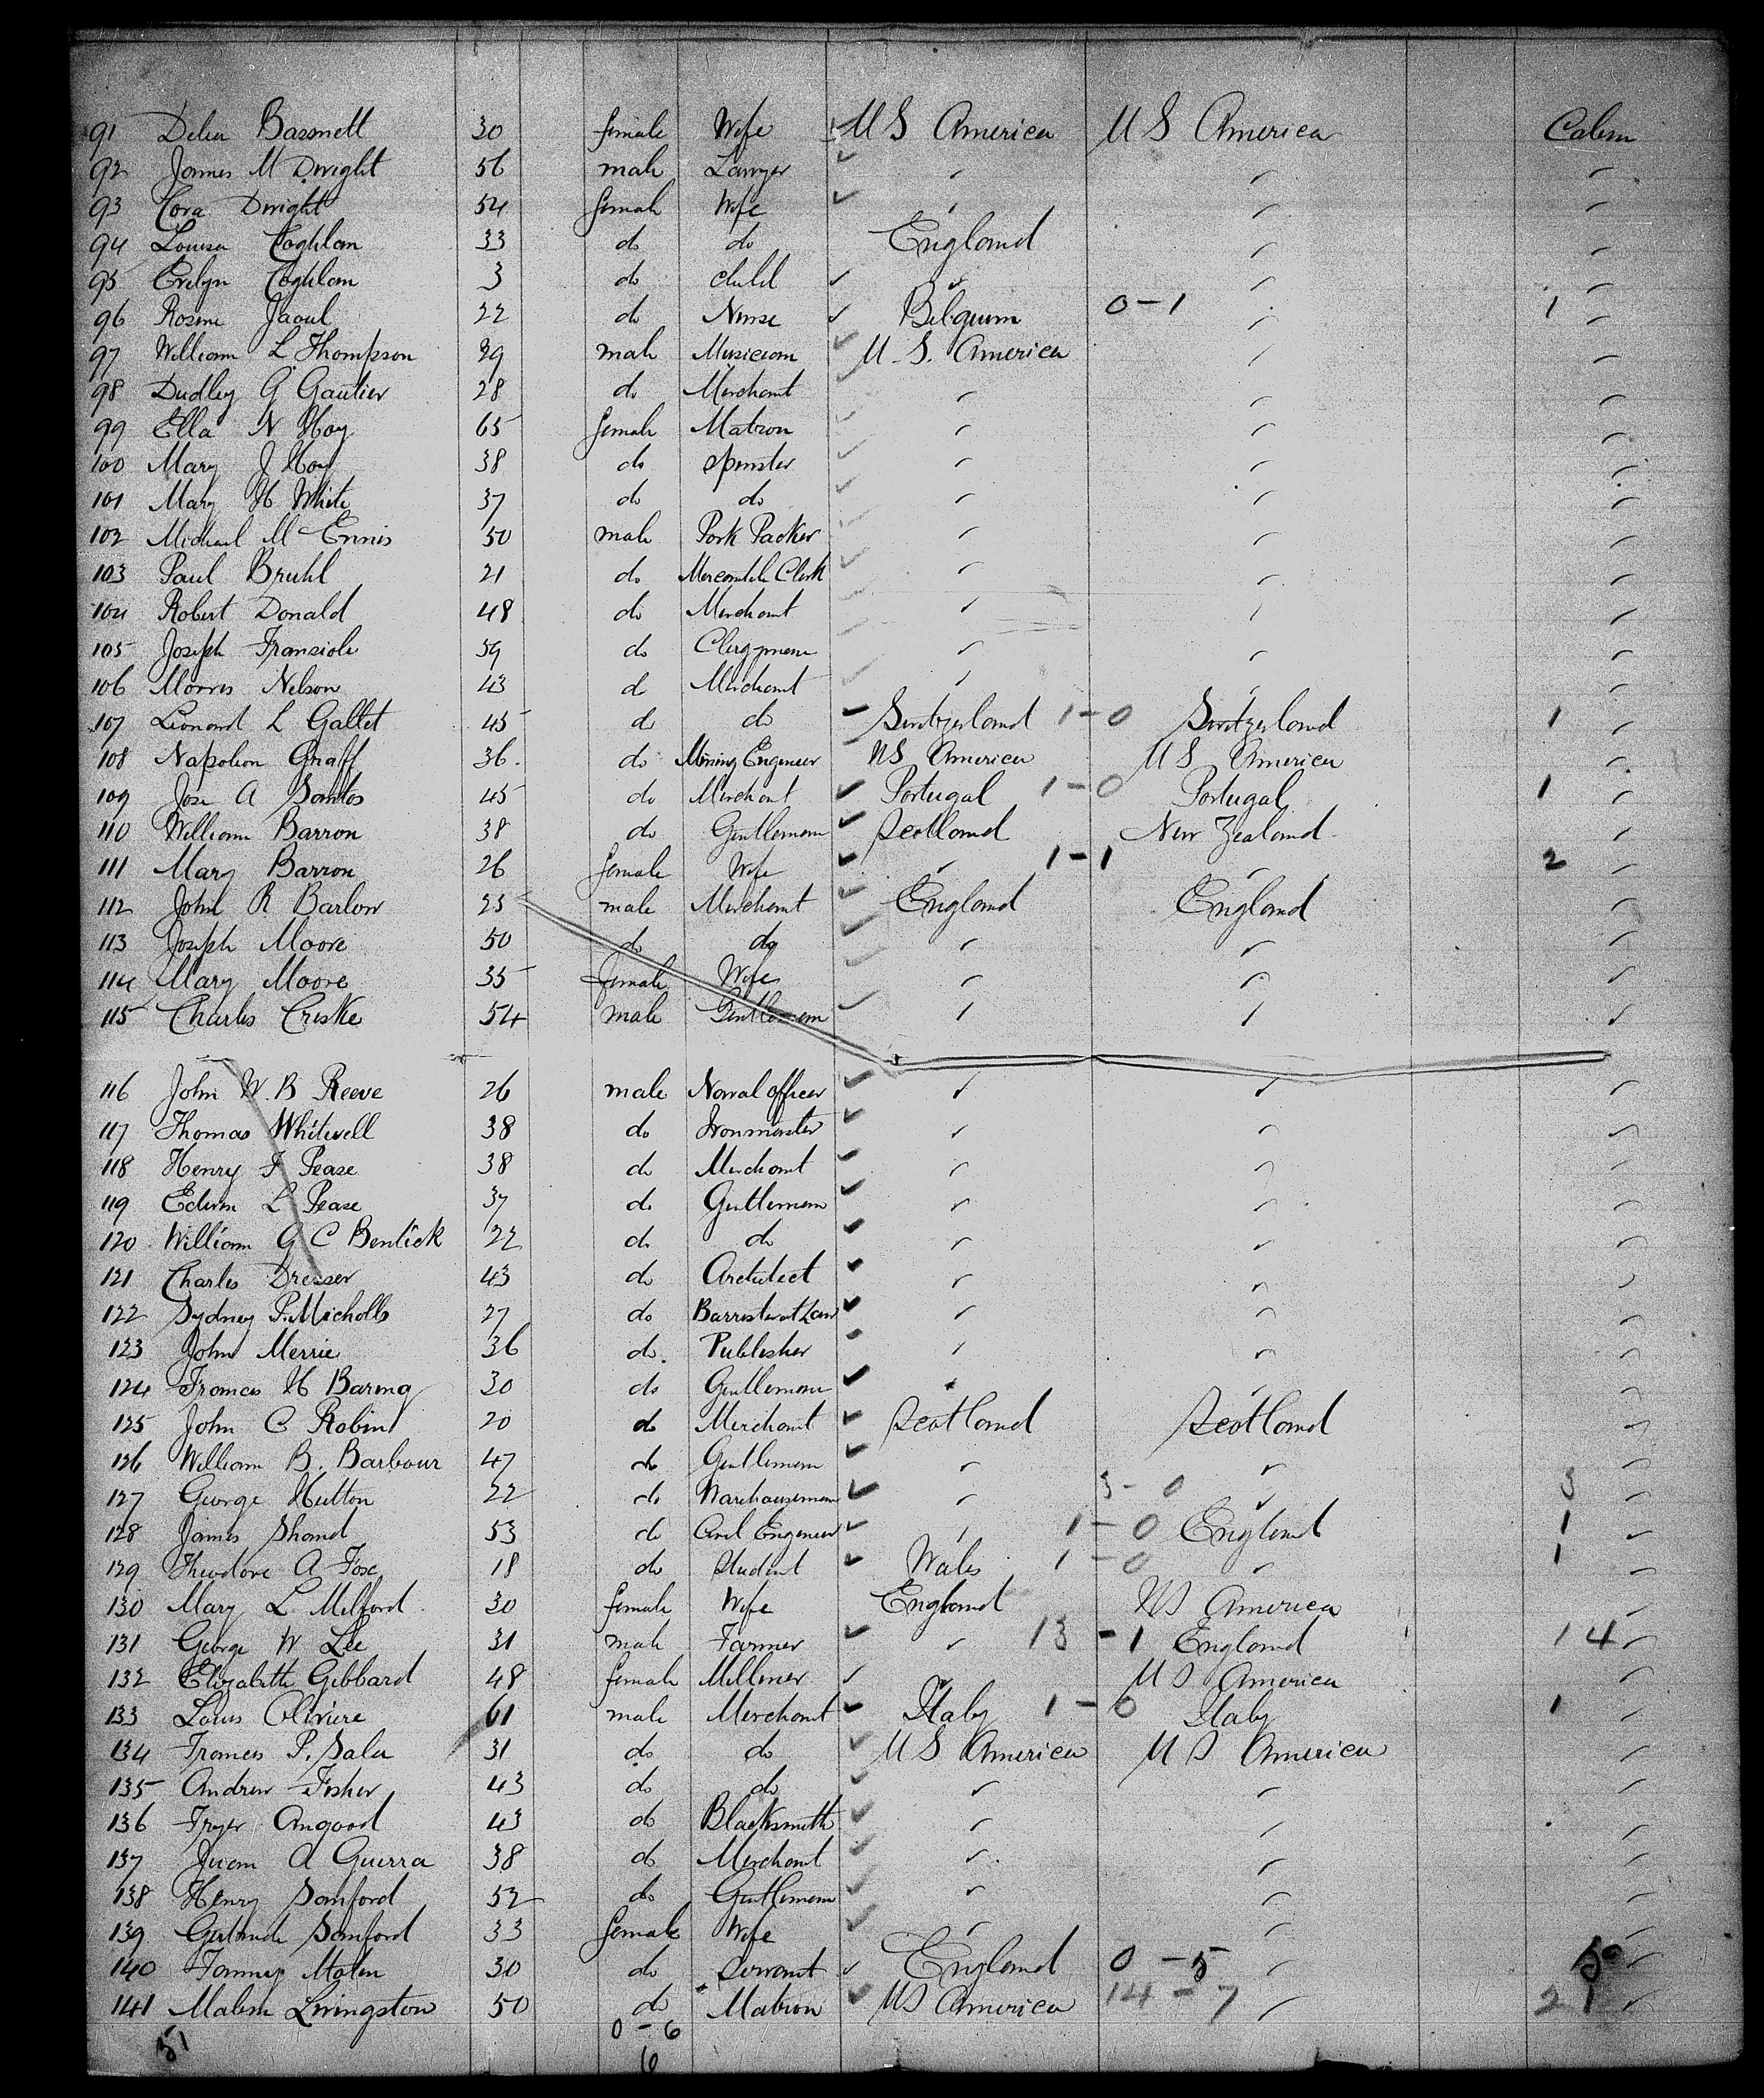 91 Delia Bassnett 30 female Wife U S America U S America Cabin
92 James M Dwight 56 male Lawyer " " "
93 Cora Dwight 54 female Wife " " "
94 Louisa Coghlan 33 do do England " "
95 Evelyn Coghlan 3 do child " " "
96 Rosine Jaoul 22 do Nurse Belgium 0-1 " 1 "
97 William L Thompson 29 male Musician U.S. America " "
98 Dudley G Gautier 28 do Merchant " " "
99 Ella N Hoy 65 female Matron " " "
100 Mary J Hoy 38 do spinster " " "
101 Mary H White 37 do do " " "
102 Michael M Ennis 50 male Pork Packer " " "
103 Paul Bruhl 21 do Mercantile Clerk " " "
104 Robert Donald 48 do Merchant " " "
105 Joseph Fransioli 59 do Clergyman " " "
106 Morris Nelson 43 do Merchant " " "
107 Leonard L Gallet 45 do do Switzerland 1-0 Switzerland 1 "
108 Napoleon Graff 36. do Mining Engineer US America U S America "
109 Jose A Santos 45 do Merchant Portugal 1-0 Portugal 1 "
110 William Barron 38 do Gentleman Scotland New Zealand "
111 Mary Barron 26 female Wife " 1-1 " 2 "
112 John R Barlow 25 male Merchant England England "
113 Joseph Moore 50 do do " " "
114 Mary Moore 35 female Wife " " "
115 Charles Criske 54 male Gentleman " " "
116 John W. B Reeve 26 male Naval officer " " "
117 Thomas Whitwell 38 do Ironmaster " " "
118 Henry F Pease 38 do Merchant " " "
119 Edwin L Pease 37 do Gentleman " " "
120 William G C Bentick 22 do do " " "
121 Charles Dresser 43 do Architect " " "
122 Sydney P. Micholls 27 do Barrister at Law " " "
123 John Merrie 36 do. Publisher " " "
124 Frances H Baring 30 do Gentleman " " "
125 John C Robin 20 do Merchant Scotland Scotland "
126 William B. Barbour 47 do Gentleman " " "
127 George Hutton 22 do Warehouseman " 3-0 " 3 "
128 James Shand 53 do Civil Engineer " 1-0 England 1 "
129 Theodore A Fox 18 do Student Wales 1-0 " 1 "
130 Mary L Milford 30 female Wife England US America "
131 George W Lee 31 male Farmer " 13-1 England 14 "
132 Elizabeth Gibbard 48 female Milliner " U S America "
133 Louis Oliviere 61 male Merchant Italy 1-0 Italy 1 "
134 Frances P. Sala 31 do do U S America U S America "
135 Andrew Fisher 43 do do " " "
136 Fryer Angood 43 do Blacksmith " " "
137 Juan A Guerra 38 do Merchant " " "
138 Henry Sanford 52 do Gentleman " " "
139 Gertrude Sanford 33 female Wife " " "
140 Fanny Malin 30 do Servant England 0-5 " "
141 Livingston 50 do Matron US America 14-7 " 21 "
51 0-6
6